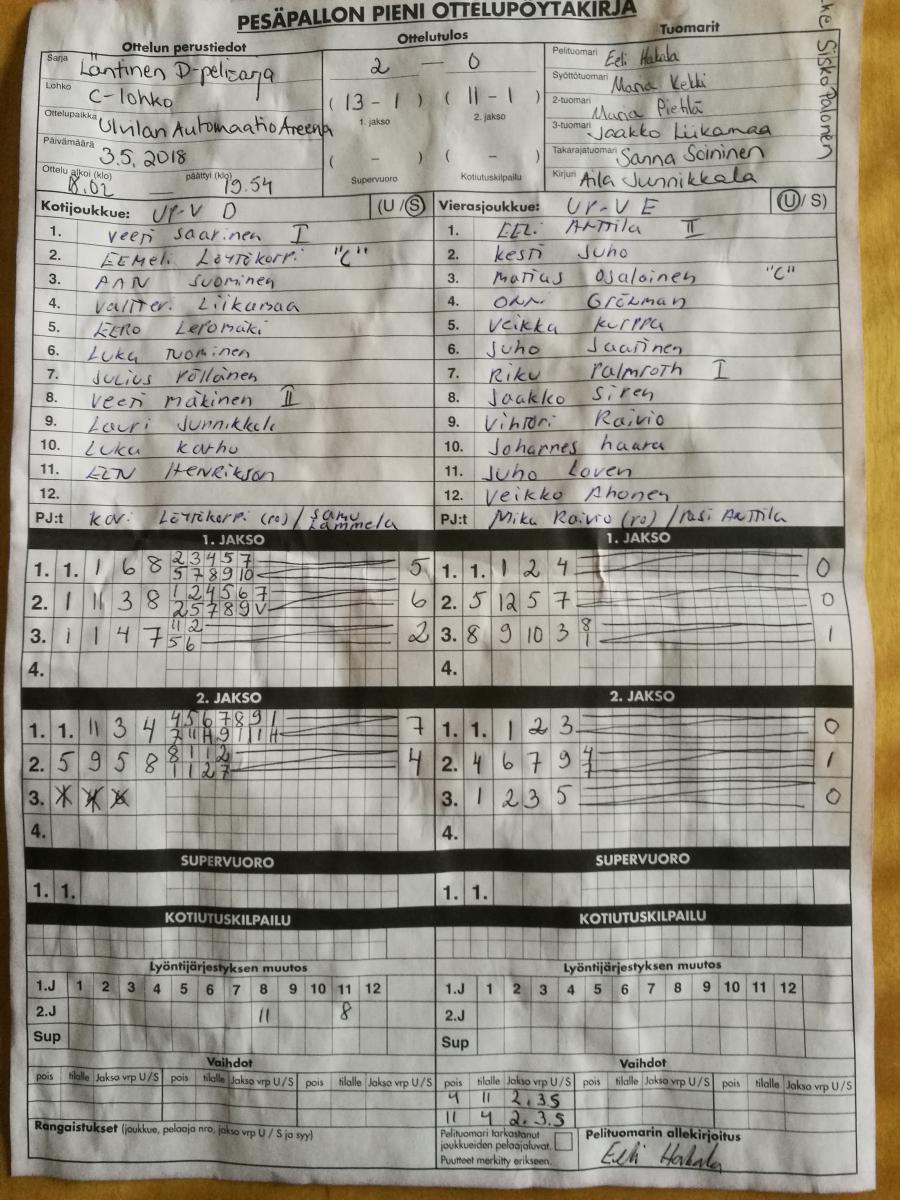 PESÄPALLON PIENI OTTELUPÖYTÄKIRJA
Ottelun perustiedot
Sarja Läntinen D-pelisarja
Lohko C-lohko
Ottelupaikka Ulvilan Automaatio Areena
Päivämäärä 3.5. 2018
Ottelu alkoi (klo) 18.02 — päättyi (klo) 19.54
Ottelutulos
2 — 0
( 13 - 1 ) ( 11 - 1 )
1. jakso 2. jakso
( - ) ( - )
Supervuoro Kotiutuskilpailu
Tuomarit
Pelituomari Eeli Hakala
Syöttötuomari Maria Kekki
2-tuomari Maria Pietilä
3-tuomari Jaakko Liikamaa
Takarajatuomari Sanna Soininen
Kirjuri Aila Junnikkala
Sisko Palonen
Kotijoukkue: UP-V D (U/S)
1. Veeti Saarinen I
2. EEMeli Löytökorpi "C"
3. Suominen
4. Valtteri Liikamaa
5. EERO Lepomäki
6. Luka Tuominen
7. Julius Pöllänen
8. Veeti Mäkinen II
9. Lauri Junnikkala
10. Luka Karhu
11. Henrikson
12.
PJ:t Kari Löytökorpi (ro) / Samu Lammela
Vierasjoukkue: UP-V E (U/S)
1. EELi Anttila II
2. Kesti Juho
3. Matias Ojaloinen "C"
4. Onni Grökman
5. Veikka Kurppa
6. Juho Saarinen
7. Riku Palmroth I
8. Jaakko Siren
9. Vihtori Raivio
10. Johannes haara
11. Juho Loven
12. Veikko Ahonen
PJ:t Mika Raivio (ro) / Pasi Anttila
1. JAKSO
1. 1. 1 6 8 2 3 4 5 7 5
5 7 8 9 10
2. 1 11 3 8 1 2 4 5 6 7 6
2 5 7 8 9 V
3. 1 1 4 7 11 2 2
5 6
4.
1. JAKSO
1. 1. 1 2 4 0
2. 5 12 5 7 0
3. 8 9 10 3 8 1
1
4.
2. JAKSO
1. 1. 11 3 4 4 5 6 7 8 9 1 7
7 11 H 9 1 11 H
2. 5 9 5 8 8 1 1 2 4
1 1 2 7
3.
4.
2. JAKSO
1. 1. 1 2 3 0
2. 4 6 7 9 4 1
7
3. 1 2 3 5 0
4.
SUPERVUORO
1. 1.
SUPERVUORO
1. 1.
KOTIUTUSKILPAILU
KOTIUTUSKILPAILU
Lyöntijärjestyksen muutos
1.J 1 2 3 4 5 6 7 8 9 10 11 12
2.J 11 8
Sup
Lyöntijärjestyksen muutos
1.J 1 2 3 4 5 6 7 8 9 10 11 12
2.J
Sup
Vaihdot
pois tilalle Jakso vrp U/S pois tilalle Jakso vrp U/S pois tilalle Jakso vrp U/S
Vaihdot
pois tilalle Jakso vrp U/S pois tilalle Jakso vrp U/S pois tilalle Jakso vrp U/S
4 11 2.3S
11 4 2.3.S
Rangaistukset (joukkue, pelaaja nro, jakso vrp U / S ja syy)
Pelituomari tarkastanut
joukkueiden pelaajaluvat.
Puutteet merkitty erikseen.
Pelituomarin allekirjoitus
Eeli Hakala